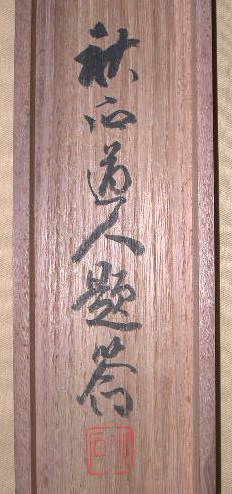 秋石道人題簽